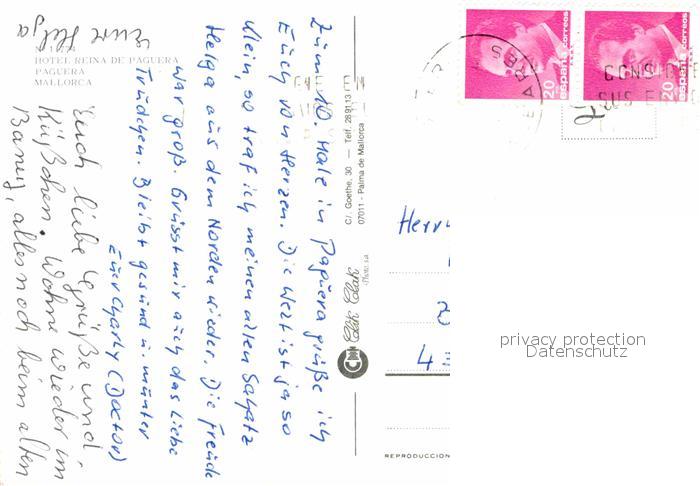 1174
HOTEL REINA DE PAGUERA
PAGUERA
MALLORCA
Zum 10. Male in Paguera grüße ich
Euch von Herzen. Die Welt ist ja so
klein, so traf ich meinen alten Schatz
Helga aus dem Norden wieder. Die Freude
war groß. Grüsst mir auch das liebe
Trudchen. Bleibt gesund u. munter
Euer Charly (Doctor)
Euch liebe Grüße und
Küßchen. Wohne wieder im
alles noch beim alten
Eure Helga
C/. Goethe, 30 — Telf. 289113
07011 - Palma de Mallorca
Clik Clak
REPRODUCCION
Herrn
4
20 españa correos
20 españa correos
privacy protection
Datenschutz